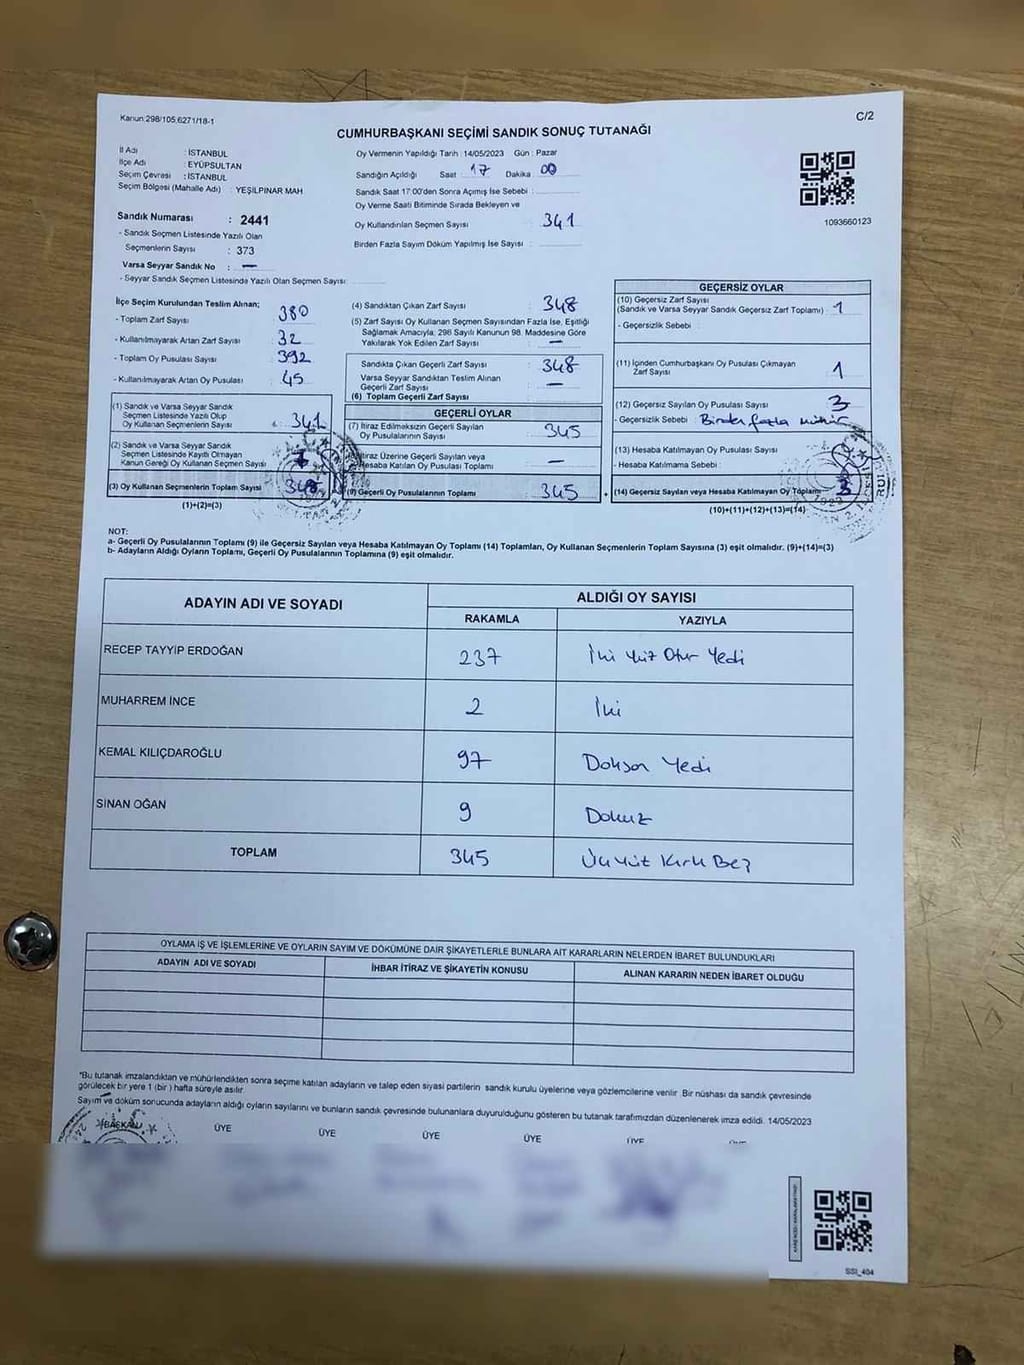 Kanun:298/105,6271/18-1
C/2
CUMHURBAŞKANI SEÇİMİ SANDIK SONUÇ TUTANAĞI
İl Adı : İSTANBUL
İlçe Adı : EYÜPSULTAN
Seçim Çevresi : İSTANBUL
Seçim Bölgesi (Mahalle Adı) : YEŞİLPINAR MAH
Sandık Numarası : 2441
- Sandık Seçmen Listesinde Yazılı Olan
Seçmenlerin Sayısı : 373
Varsa Seyyar Sandık No : —
- Seyyar Sandık Seçmen Listesinde Yazılı Olan Seçmen Sayısı:
Oy Vermenin Yapıldığı Tarih :14/05/2023 Gün : Pazar
Sandığın Açıldığı Saat : 17 Dakika : 00
Sandık Saat 17:00'den Sonra Açımış İse Sebebi :
Oy Verme Saati Bitiminde Sırada Bekleyen ve
Oy Kullandırılan Seçmen Sayısı : 341
Birden Fazla Sayım Döküm Yapılmış İse Sayısı :
1093660123
İlçe Seçim Kurulundan Teslim Alınan;
- Toplam Zarf Sayısı : 380
- Kullanılmayarak Artan Zarf Sayısı : 32
- Toplam Oy Pusulası Sayısı : 392
- Kullanılmayarak Artan Oy Pusulası : 45
(1) Sandık ve Varsa Seyyar Sandık
Seçmen Listesinde Yazılı Olup
Oy Kullanan Seçmenlerin Sayısı : 341
(2) Sandık ve Varsa Seyyar Sandık
Seçmen Listesinde Kayıtlı Olmayan
Kanun Gereği Oy Kullanan Seçmen Sayısı : 7
(3) Oy Kullanan Seçmenlerin Toplam Sayısı : 348
(1)+(2)=(3)
(4) Sandıktan Çıkan Zarf Sayısı : 348
(5) Zarf Sayısı Oy Kullanan Seçmen Sayısından Fazla İse, Eşitliği
Sağlamak Amacıyla; 298 Sayılı Kanunun 98. Maddesine Göre
Yakılarak Yok Edilen Zarf Sayısı : —
Sandıkta Çıkan Geçerli Zarf Sayısı : 348
Varsa Seyyar Sandıktan Teslim Alınan
Geçerli Zarf Sayısı : —
(6) Toplam Geçerli Zarf Sayısı :
GEÇERLİ OYLAR
(7) İtiraz Edilmeksizin Geçerli Sayılan
Oy Pusulalarının Sayısı : 345
İtiraz Üzerine Geçerli Sayılan veya
Hesaba Katılan Oy Pusulası Toplamı : —
(9) Geçerli Oy Pusulalarının Toplamı : 345
GEÇERSİZ OYLAR
(10) Geçersiz Zarf Sayısı
(Sandık ve Varsa Seyyar Sandık Geçersiz Zarf Toplamı) : 1
- Geçersizlik Sebebi :
(11) İçinden Cumhurbaşkanı Oy Pusulası Çıkmayan
Zarf Sayısı : 1
(12) Geçersiz Sayılan Oy Pusulası Sayısı : 3
- Geçersizlik Sebebi : Birden fazla mühür
(13) Hesaba Katılmayan Oy Pusulası Sayısı :
- Hesaba Katılmama Sebebi :
(14) Geçersiz Sayılan veya Hesaba Katılmayan Oy Toplamı : 3
(10)+(11)+(12)+(13)=(14)
NOT:
a- Geçerli Oy Pusulalarının Toplamı (9) ile Geçersiz Sayılan veya Hesaba Katılmayan Oy Toplamı (14) Toplamları, Oy Kullanan Seçmenlerin Toplam Sayısına (3) eşit olmalıdır. (9)+(14)=(3)
b- Adayların Aldığı Oyların Toplamı, Geçerli Oy Pusulalarının Toplamına (9) eşit olmalıdır.
ADAYIN ADI VE SOYADI
ALDIĞI OY SAYISI
RAKAMLA YAZIYLA
RECEP TAYYİP ERDOĞAN 237 İki Yüz Otuz Yedi
MUHARREM İNCE 2 İki
KEMAL KILIÇDAROĞLU 97 Doksan Yedi
SİNAN OĞAN 9 Dokuz
TOPLAM 345 Üçyüz Kırk Beş
OYLAMA İŞ VE İŞLEMLERİNE VE OYLARIN SAYIM VE DÖKÜMÜNE DAİR ŞİKAYETLERLE BUNLARA AİT KARARLARIN NELERDEN İBARET BULUNDUKLARI
ADAYIN ADI VE SOYADI İHBAR İTİRAZ VE ŞİKAYETİN KONUSU ALINAN KARARIN NEDEN İBARET OLDUĞU
*Bu tutanak imzalandıktan ve mühürlendikten sonra seçime katılan adayların ve talep eden siyasi partilerin sandık kurulu üyelerine veya gözlemcilerine verilir. Bir nüshası da sandık çevresinde
görülecek bir yere 1 (bir ) hafta süreyle asılır.
Sayım ve döküm sonucunda adayların aldığı oyların sayılarını ve bunların sandık çevresinde bulunanlara duyurulduğunu gösteren bu tutanak tarafımızdan düzenlenerek imza edildi. 14/05/2023
BAŞKAN ÜYE ÜYE ÜYE ÜYE ÜYE
SSI_404